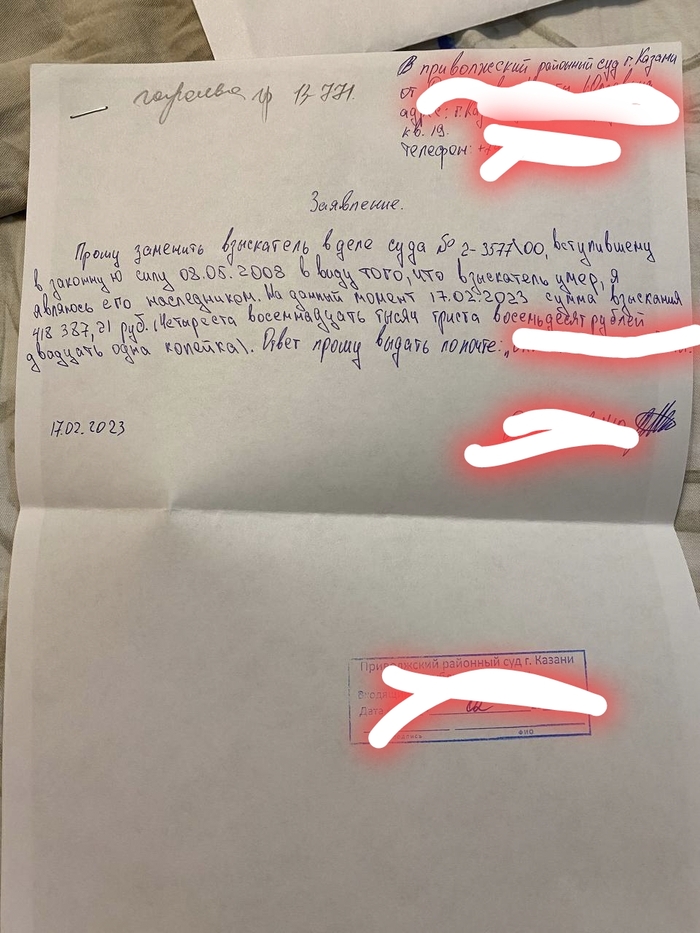 В приволжский районный суд г. Казани
от
адрес: г.
кв. 19.
телефон:
гр 13-771.
Заявление.
Прошу заменить взыскатель в деле суда № 2-3577\00, вступившему
в законную силу 08.05.2008 в виду того, что взыскатель умер, я
являюсь его наследником. На данный момент 17.02.2023 сумма взыскания
418 387,21 руб. (Четыреста восемнадцать тысяч триста восемьдесят рублей
двадцать одна копейка). Ответ прошу выдать по почте:
17.02.2023
Приволжский районный суд г. Казани
Дата
ФИО